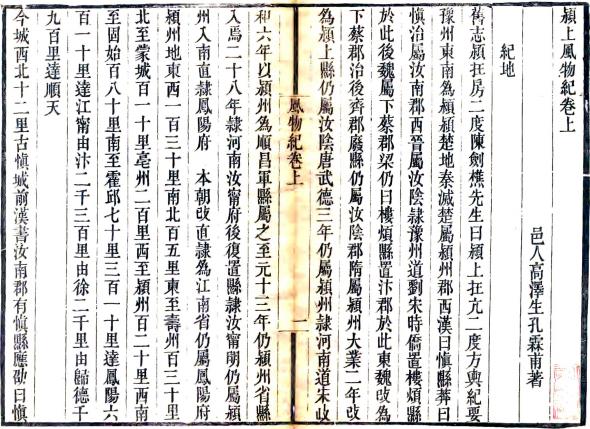 潁上風物紀卷上
邑人高澤生孔霖甫著
紀地
舊志潁在房二度陳劍樵先生曰潁上在亢二度方輿紀要
豫州東南為潁潁楚地秦滅楚屬潁州郡西漢曰慎縣莽曰
慎治屬汝南郡西晉屬汝陰隷豫州道劉宋時僑置樓煩縣
於此後魏屬下蔡郡梁仍曰樓煩縣置汴郡於此東魏改為
下蔡郡治後齊郡廢縣仍屬汝陰郡隋屬潁州大業二年改
為潁上縣仍屬汝陰唐武德三年仍屬潁州隷河南道宋政
風物紀卷上
一
和六年以潁州為順昌軍縣屬之至元十三年仍潁州省縣
入焉二十八年隷河南汝甯府後復置縣隷汝甯明仍屬潁
州入南直隷鳳陽府 本朝改直隷為江南省仍屬鳳陽府
潁州地東西一百三十里南北百五里東至壽州百三十里
北至蒙城百一十里亳州二百里西至潁州百二十里西南
至固始百八十里南至霍邱七十里三百一十里達鳳陽六
百一十里達江甯由汴二千三百里由徐二千里由歸德千
九百里達順天
今城西北十二里古慎城前漢書汝南郡有慎縣應劭曰慎